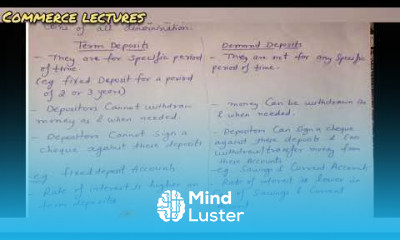 COMMERCE LECTURES
Coins of all denomination.
Term Deposits
- They are for specific period
of time
(eg fixed Deposit for a period
of 2 or 3 years)
- Depositors Cannot withdraw
money as & when needed.
- Depositors Cannot Sign a
cheque against these deposits
eg fixed deposit Accounts
- Rate of interest is higher on
term deposits
Demand Deposits
- They are not for any specific
period of time.
- money Can be withdrawn as
& when needed.
- Depositors Can Sign a cheque
against these deposits & Can
withdraw/transfer money from
these accounts
- eg. Savings & Current Account
- Rate of interest is lower in
of Savings & Current
Mind
Luster